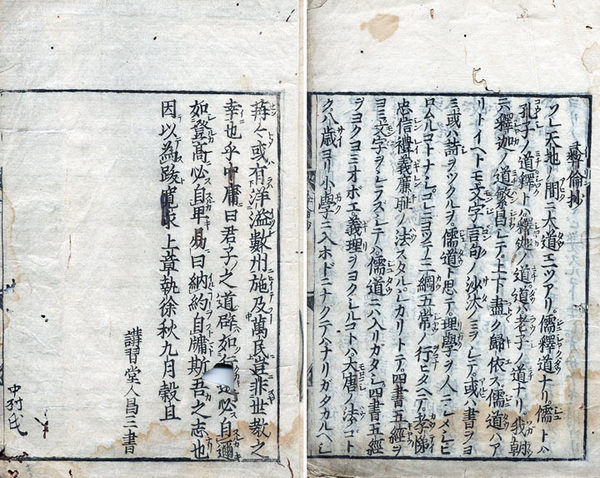 彝倫抄
ソレ天地ノ間ニ大道三ツアリ儒釋道ナリ儒トハ
孔子ノ道釋トハ釋迦ノ道道ハ老子ノ道ナリ我朝
ニハ釋迦ノ道繁昌シテ上下盡ク歸依ス儒道ハア
リトイヘトモ文字言句ノ沙汰ノミヲシテ或ハ書ヲヨ
ミ或ハ詩ヲツクルヲ儒道ト思テ理學ヲ人ニシメシヒ
ロムルコトナシコヽニヨリテ三綱五常ノ行ヒ孝悌
忠信禮義廉耻ノ法スタルベシカリトテ四書五經
ヨミ文字ヲシラズシテ儒道ニハ入リガタシ四書五經ヲ
ヨクヨミオボエ義理ヲヨクシルコトハ大唐ノ法ノゴト
ク八歳ヨリ小學ニ入ホドニナクテハナリガタカルベシ
蒋々或有洋溢數州施及萬民豈非世教之
幸也乎中庸曰君子之道辟如行必自邇
如登高必自卑易曰納約自牖斯吾之志也
因以為跋寛永上章執徐秋九月穀旦
講習堂人昌三書
中村氏